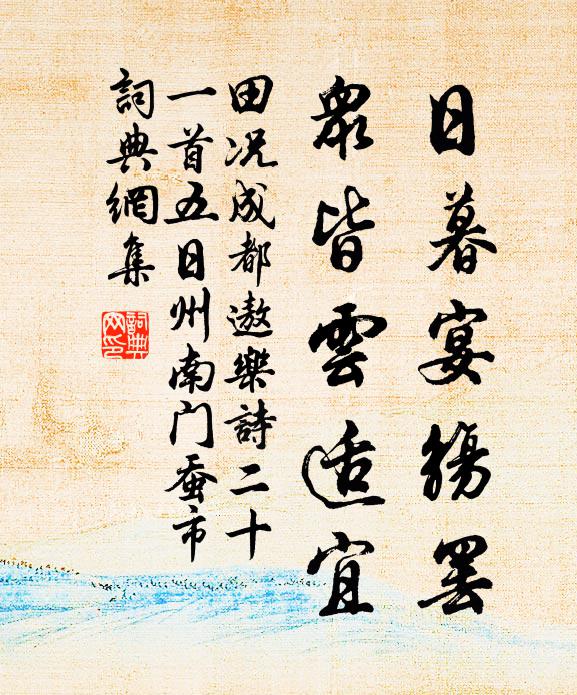 日暮宴觴罷
眾皆雲适宜
田况成都遨樂詩二十
一首五日州南门蚕市
詞典網集
詞典網印